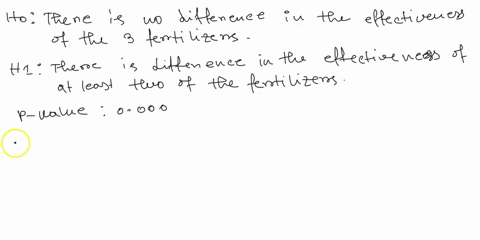 H0: There is no difference in the effectiveness
of the 3 fertilizers.
H1: There is difference in the effectiveness of
at least two of the fertilizers.
p-value : 0.000